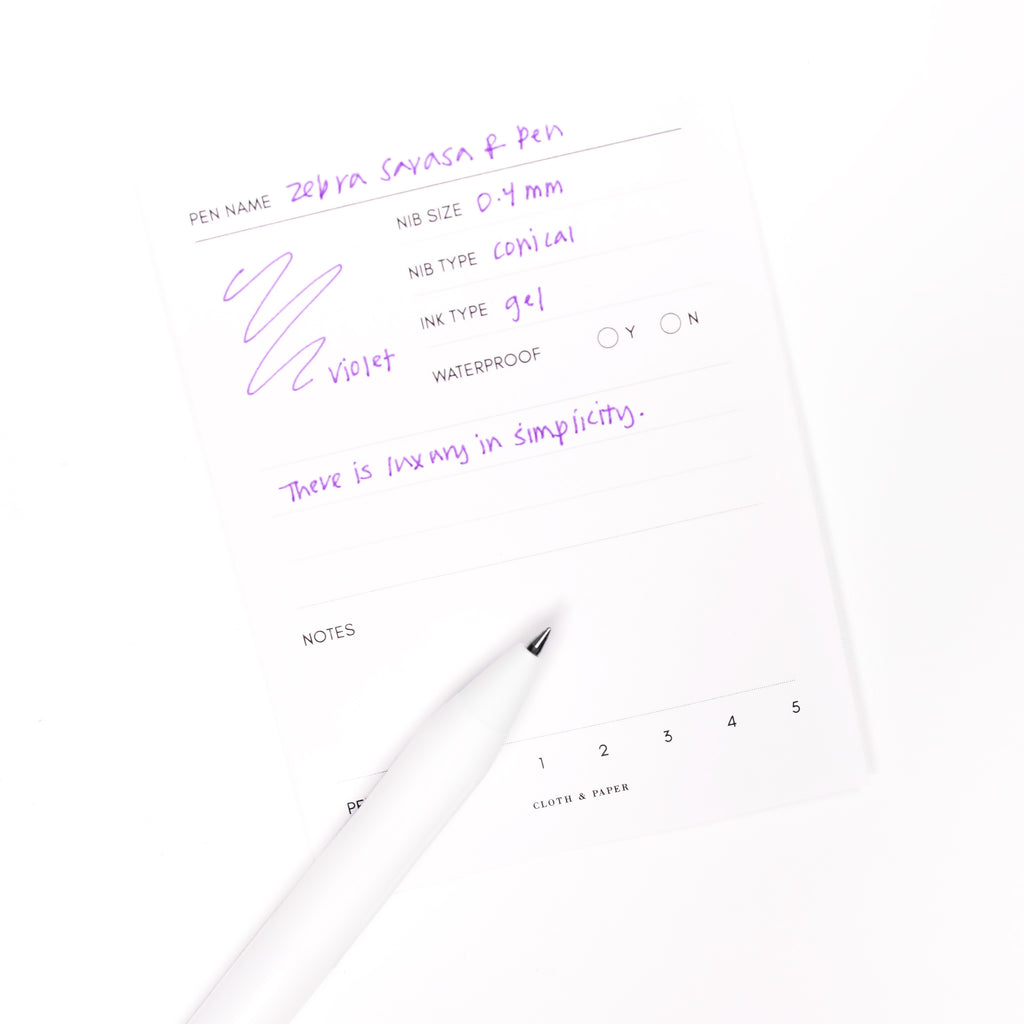 PEN NAME zebra sarasa R Pen
NIB SIZE 0.4 mm
NIB TYPE conical
INK TYPE gel
violet
WATERPROOF Y N
There is luxury in simplicity.
NOTES
1 2 3 4 5
CLOTH & PAPER